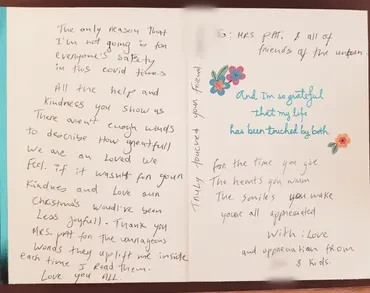 The only reason that
I'm not going is for
everyone's safety
in this covid times
All the help and
kindness you show us
There aren't enough words
to describe How greatfull
We are an Loved we
Feel. if it wasn't for your
Kindness and Love our
Christmas would've been
Less Joyfull - Thank you
Mrs. PAT for the courageous
Words they uplift me inside
each time I Read them.
Love you ALL.
Truly touched your friend
To: MRS PAT, & all of
friends of the unborn.
And I'm so grateful
that my life
has been touched by both.
for the time you give
The hearts you warm
The smiles you make
your all appreciated
With: Love
and appreciation from
& Kids.